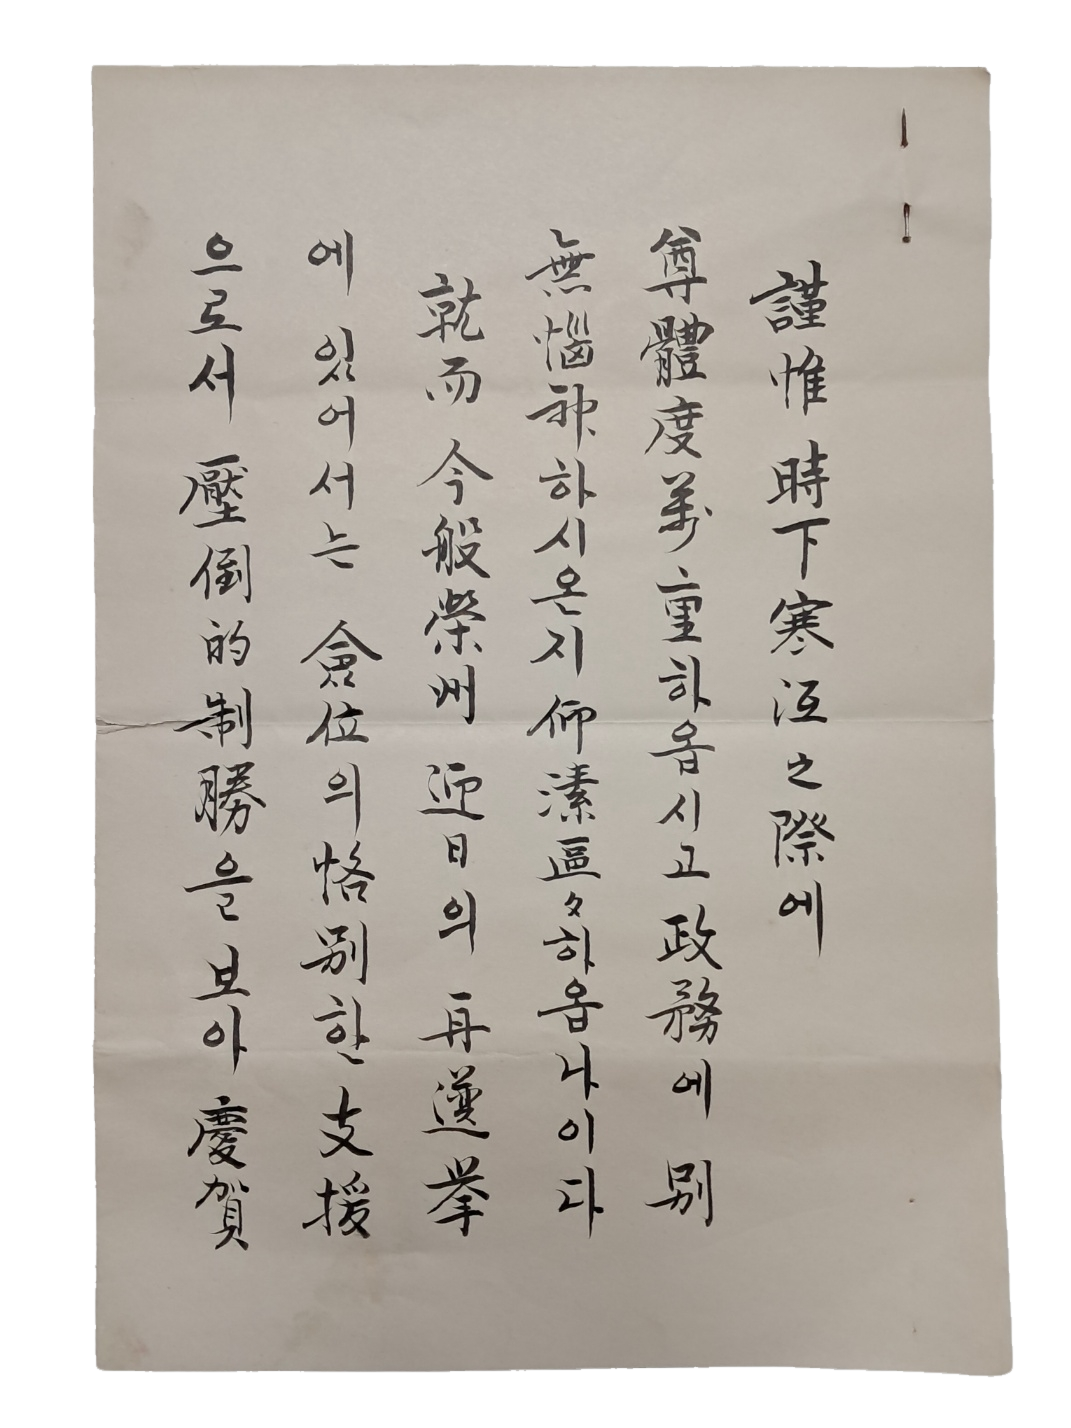 謹惟 時下寒沍之際에
尊體度萬重하옵시고 政務에 別
無惱神하시온지 仰溸區々하옵나이다
就而 今般榮州 迎日의 再選挙
에 있어서는 僉位의 恪別한 支援
으로서 壓倒的制勝을 보아 慶賀